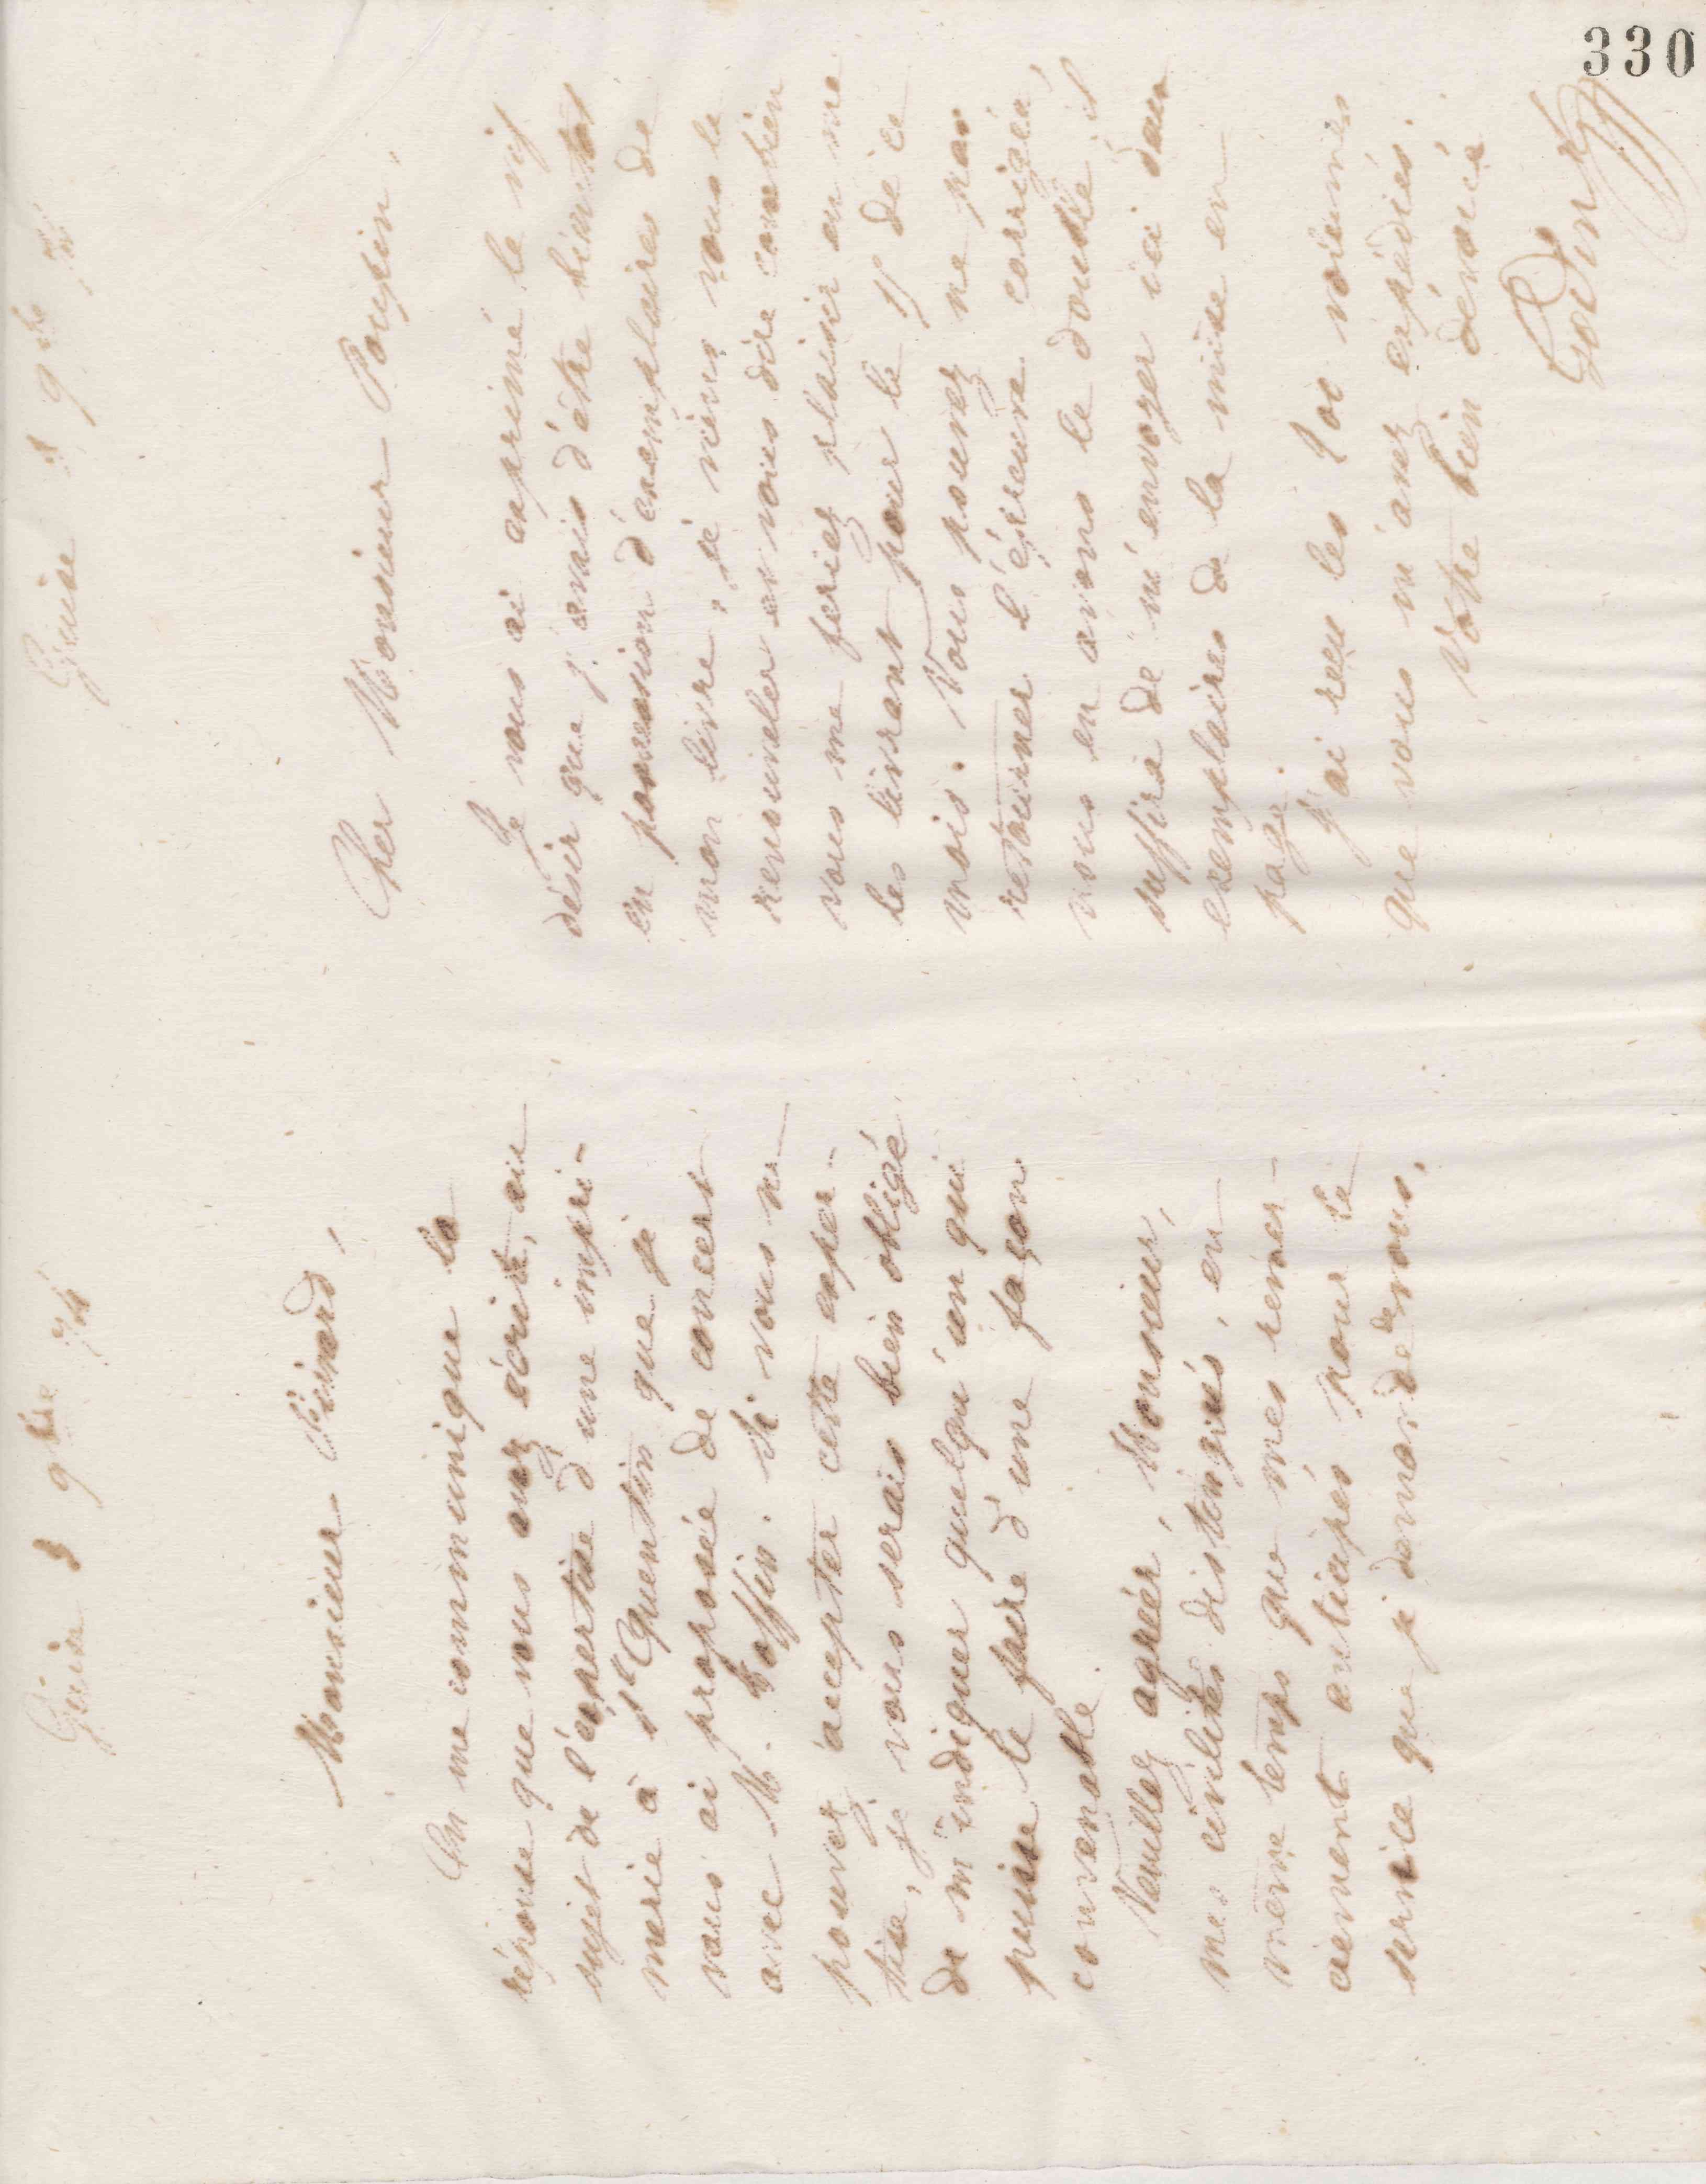 330
Guise 3 9bre 74
Monsieur
On me communique la
réponse que vous avez écrite, au
sujet de l'expertise d'une impri-
merie à St Quentin que je
vous ai proposée de concert
avec M. . Si vous ne
pouvez accepter cette exper-
tise, je vous serais bien obligé
de m'indiquer quelqu'un qui
puisse le faire d'une façon
convenable.
Veuillez agréer, Monsieur,
mes civilités distinguées, en
même temps que mes remer-
ciements anticipés pour le
service que je demande de vous.
Guise 9bre 74
Cher Monsieur Poupin,
Je vous ai exprimé le vif
désir que j'avais d'être bientôt
en possession d'exemplaires de
mon livre, je viens vous le
renouveler et vous dire combien
vous me feriez plaisir en me
les livrant pour le 15 de ce
mois. Vous pouvez ne pas
retourner l'épreuve corrigée,
nous en avons le double, il
suffira de m'envoyer ici deux
exemplaires de la mise en
page.
J'ai reçu les 100 volumes
que vous m'avez expédiés.
Votre bien dévoué
Godin